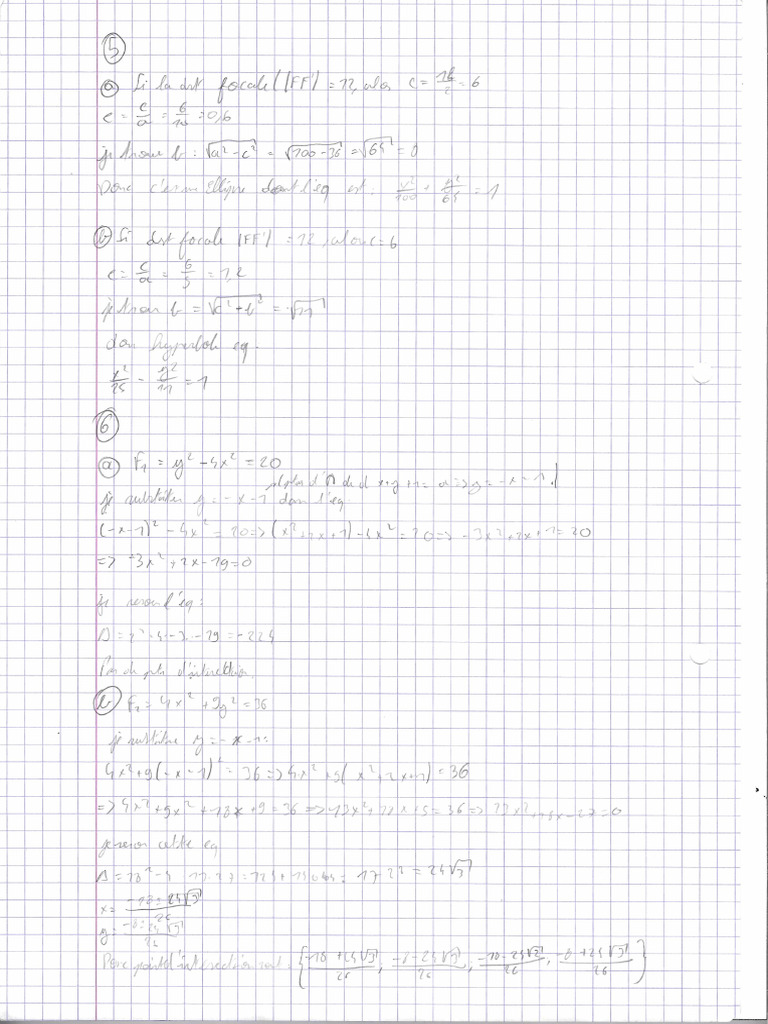 5
a Si la dst focale (|FF'| = 12, alors c = 12/2 = 6
e = c/a = 6/10 = 0,6
je trouve b = √(a² - c²) = √(100 - 36) = √64 = 0
Donc c'est une Ellipse dont l'éq est : x²/100 + y²/64 = 1
b Si dst focale |FF'| = 12, alors c = 6
e = c/a = 6/5 = 1,2
je trouve b = = √11
donc hyperbole eq.
x²/25 - y²/11 = 1
6
a F₁ = y² - 4x² = 20
x + y + 1 = 0 => y = -x - 1
je substitue y = -x - 1 dans l'éq
(-x-1)² - 4x² = 20 => (x² + 2x + 1) - 4x² = 20 => -3x² + 2x + 1 = 20
=> -3x² + 2x - 19 = 0
Je résous l'éq :
Δ = 2² - 4 · -3 · -19 = -224
Pas de pts d'intersection.
b F₂ = 4x² + 9y² = 36
je substitue y = -x - 1 :
4x² + 9(-x-1)² = 36 => 4x² + 9(x² + 2x + 1) = 36
=> 4x² + 9x² + 18x + 9 = 36 => 13x² + 18x + 9 = 36 => 13x² + 18x - 27 = 0
je résous cette eq
Δ = 18² - 4 = 24√3
x = (-18 ± 24√3)/26
y =
Donc points d'intersection sont : {(-18 + 24√3)/26 ; (-8 - 24√3)/26 ; (-18 - 24√3)/26 ; (-8 + 24√3)/26}